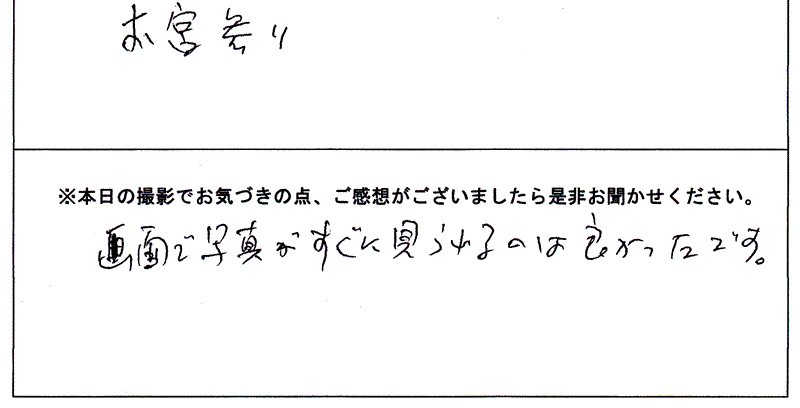 お宮参り
※本日の撮影でお気づきの点、ご感想がございましたら是非お聞かせください。
画面で写真がすぐに見られるのは良かったです。